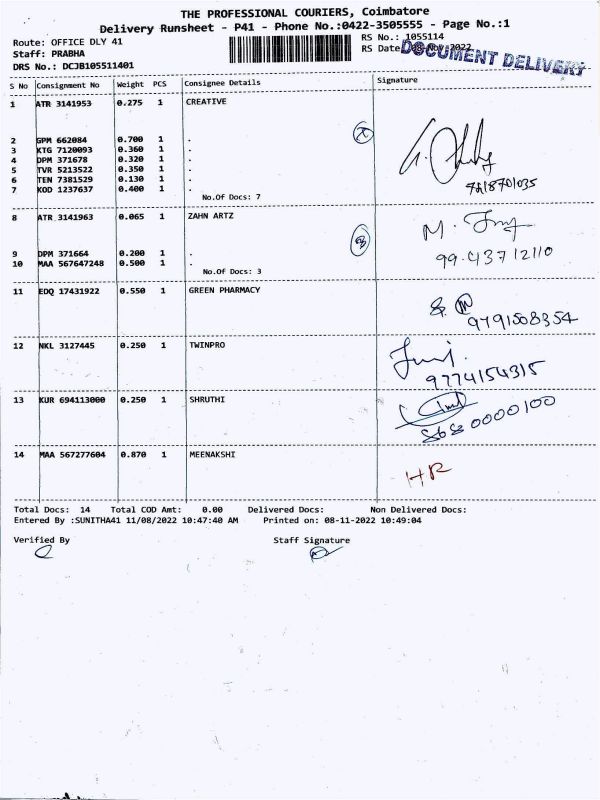 THE PROFESSIONAL COURIERS, Coimbatore
Delivery Runsheet - P41 - Phone No.:0422-3505555 - Page No.:1
Route: OFFICE DLY 41
RS No.: 1055114
Staff: PRABHA
RS Date: 08-Nov-2022
DOCUMENT DELIVERY
DRS No.: DCJB105511401
S No Consignment No Weight PCS Consignee Details Signature
1 ATR 3141953 0.275 1 CREATIVE
2 GPM 662084 0.700 1 .
3 KTG 7120093 0.360 1 .
4 DPM 371678 0.320 1 .
5 TVR 5213522 0.350 1 .
6 TEN 7381529 0.130 1 .
7 KOD 1237637 0.400 1 .
No.Of Docs: 7
8 ATR 3141963 0.065 1 ZAHN ARTZ
99.43712110
9 DPM 371664 0.200 1 .
10 MAA 567647248 0.500 1 .
No.Of Docs: 3
11 EDQ 17431922 0.550 1 GREEN PHARMACY
9791508354
12 NKL 3127445 0.250 1 TWINPRO
9774154315
13 KUR 694113000 0.250 1 SHRUTHI
0000100
14 MAA 567277604 0.870 1 MEENAKSHI
HR
Total Docs: 14 Total COD Amt: 0.00 Delivered Docs: Non Delivered Docs:
Entered By :SUNITHA41 11/08/2022 10:47:40 AM Printed on: 08-11-2022 10:49:04
Verified By Staff Signature